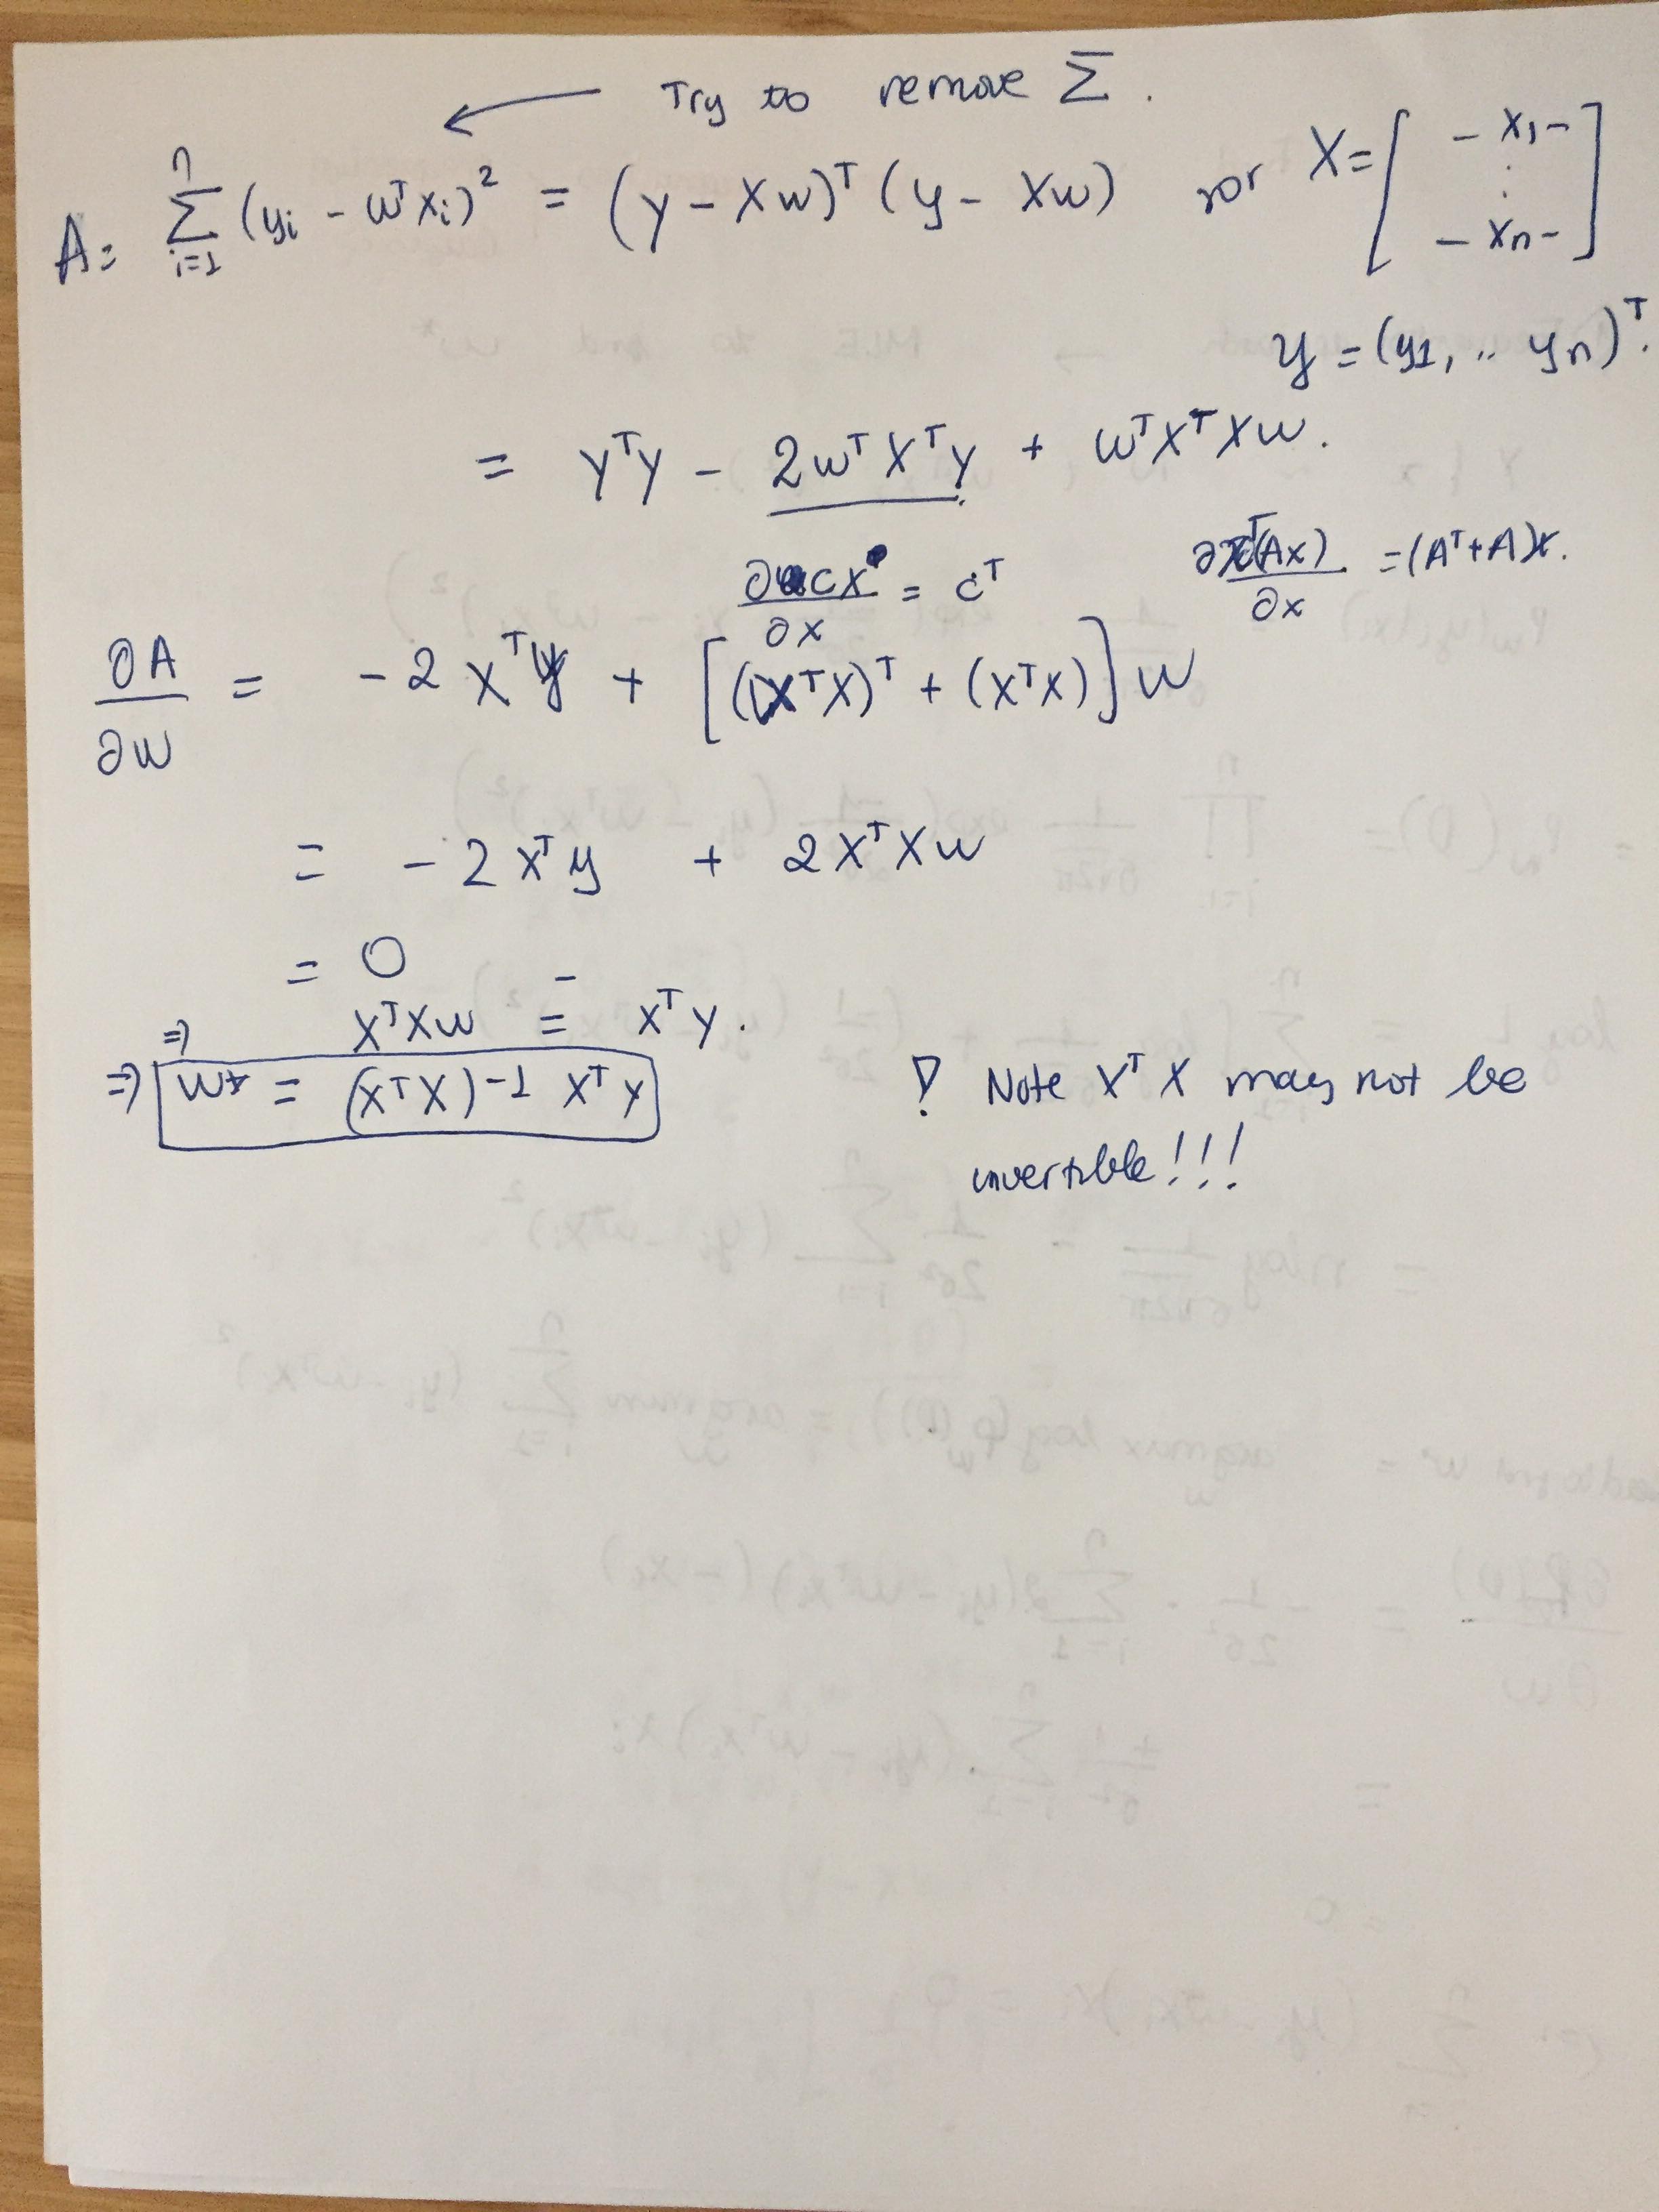 Try to remove Σ.
A = Σ_{i=1}^{n} (yi - wᵀxi)² = (y - Xw)ᵀ (y - Xw) for X = [ - x1 - ⋮ - xn - ]
y = (y1, .. yn)ᵀ.
= yᵀy - 2wᵀXᵀy + wᵀXᵀXw.
∂cx/∂x = cᵀ ∂xᵀ(Ax)/∂x = (Aᵀ+A)x.
∂A/∂w = -2Xᵀy + [(XᵀX)ᵀ + (XᵀX)]w
= -2Xᵀy + 2XᵀXw
= 0
⇒ XᵀXw = Xᵀy.
⇒ w* = (XᵀX)-1 Xᵀy
! Note XᵀX may not be
invertible!!!